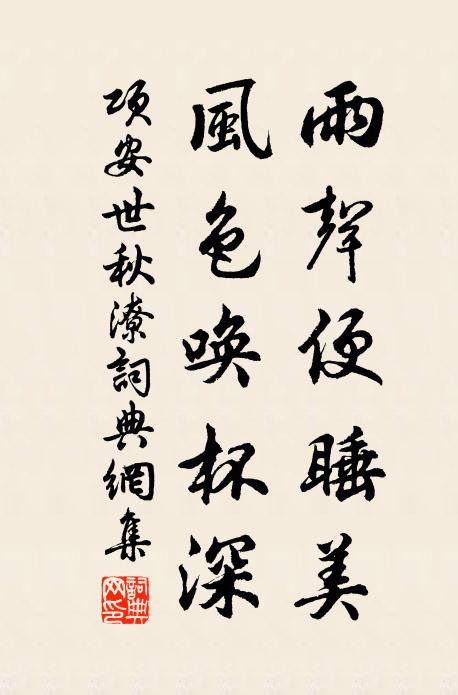 雨聲便睡美
風色喚杯深
項安世秋潦詞典網集
詞典网印